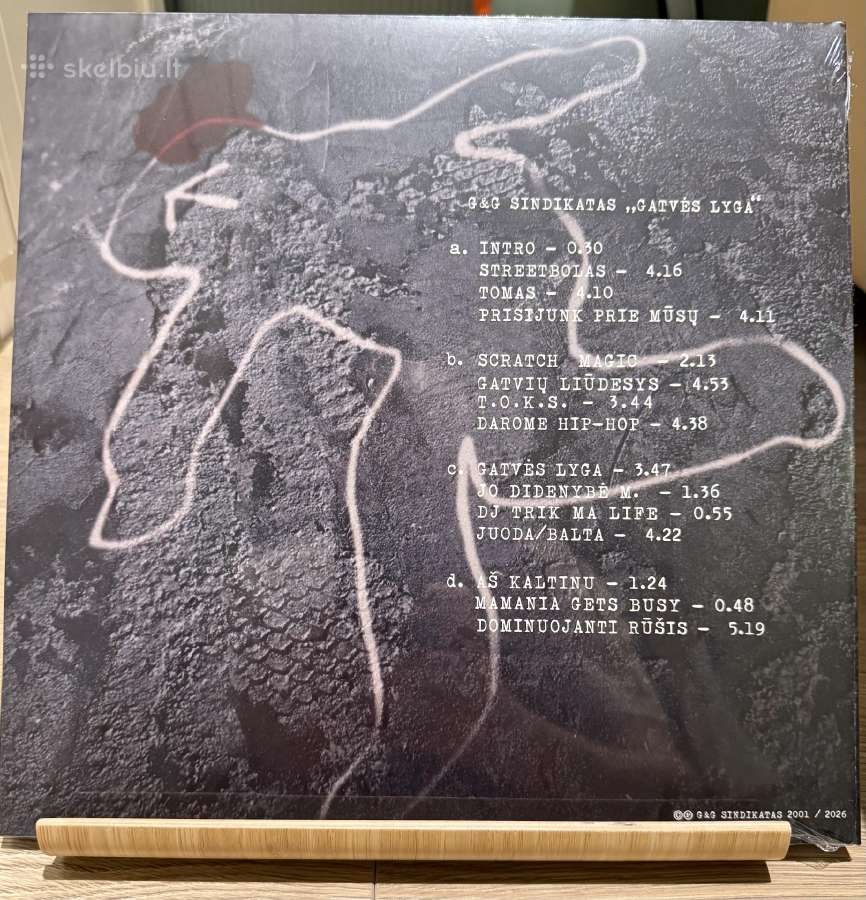 skelbiu.lt
G&G SINDIKATAS „GATVĖS LYGA“
a. INTRO – 0.30
STREETBOLAS – 4.16
TOMAS – 4.10
PRISIJUNK PRIE MŪSŲ – 4.11
b. SCRATCH MAGIC – 2.13
GATVIŲ LIŪDESYS – 4.53
T.O.K.S. – 3.44
DAROME HIP-HOP – 4.38
c. GATVĖS LYGA – 3.47
JO DIDENYBĖ M. – 1.36
DJ TRIK MA LIFE – 0.55
JUODA/BALTA – 4.22
d. AŠ KALTINU – 1.24
MAMANIA GETS BUSY – 0.48
DOMINUOJANTI RŪŠIS – 5.19
©℗ G&G SINDIKATAS 2001 / 2026